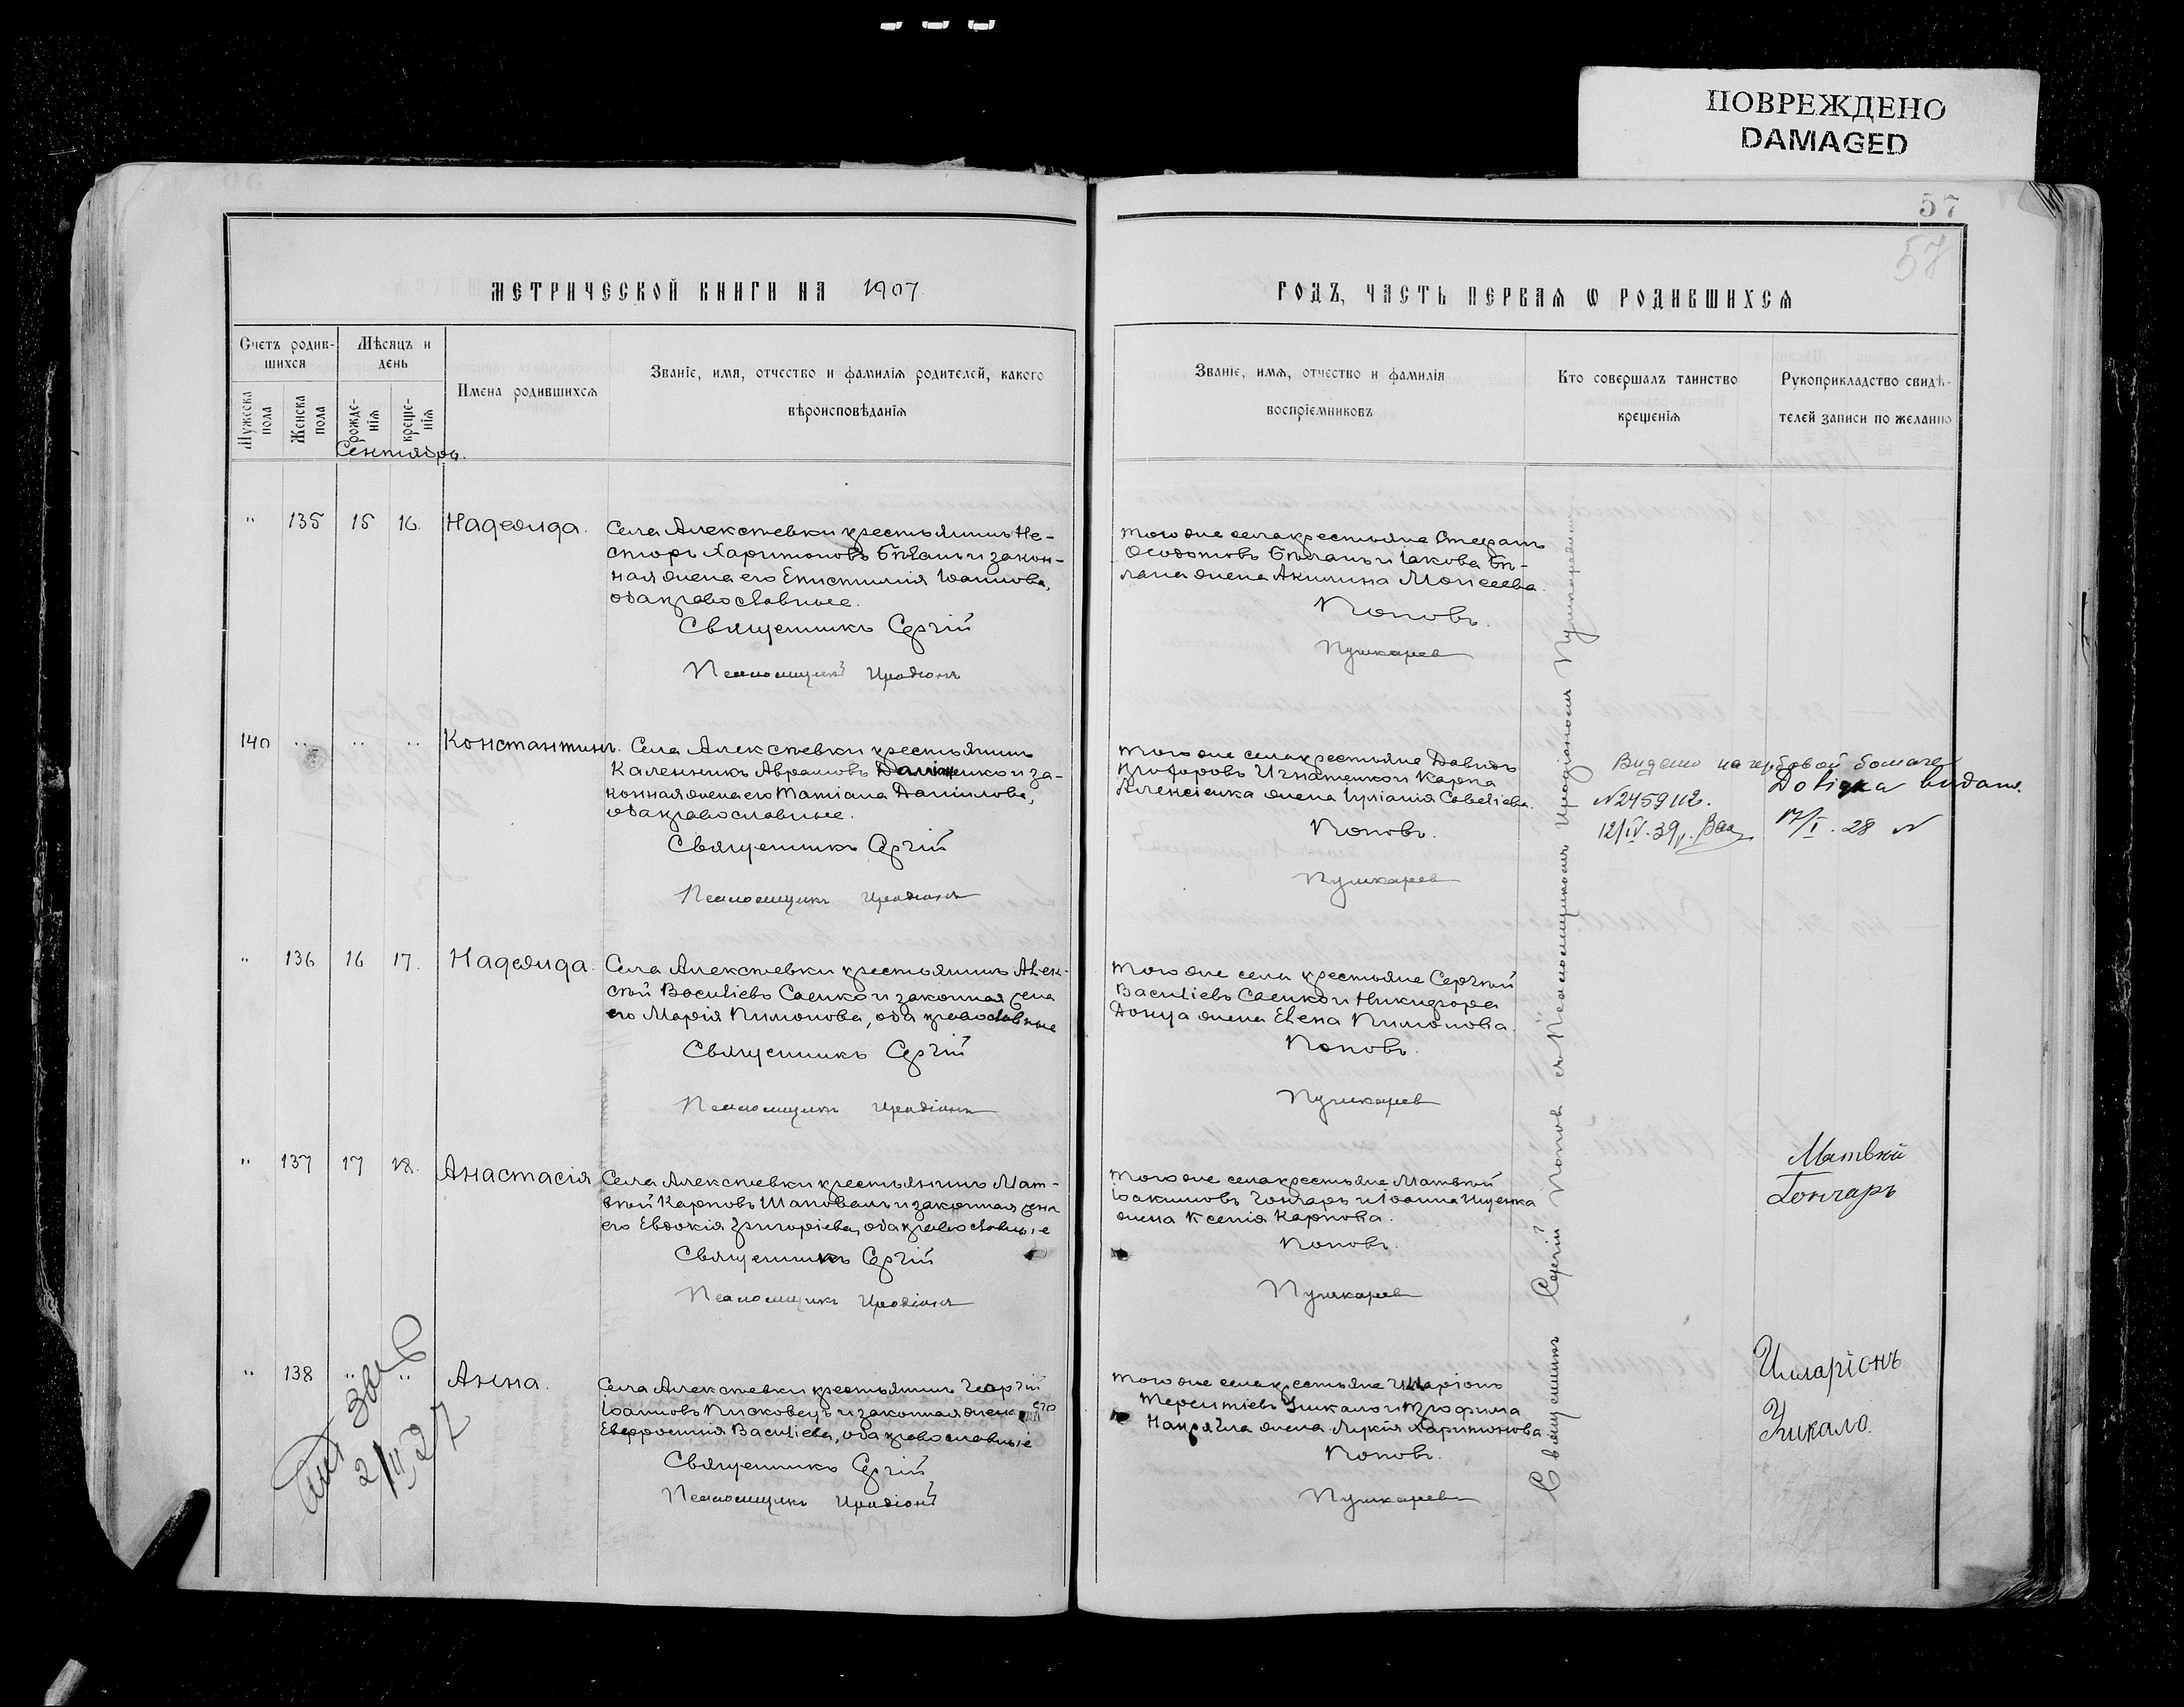 ПОВРЕЖДЕНО
DAMAGED
57
57
МЕТРИЧЕСКОЙ КНИГИ НА 1907
ГОДЪ, ЧАСТЬ ПЕРВАЯ Ѡ РОДИВШИХСЯ
Счетъ родив-
шихся
Мѣсяцъ и
день
Мужеска
пола
Женска
пола
рожде-
нія
креще-
нія
Имена родившихся
Званіе, имя, отчество и фамилія родителей, какого
вѣроисповѣданія
Званіе, имя, отчество и фамилія
воспріемниковъ
Кто совершалъ таинство
крещенія
Рукоприкладство свидѣ-
телей записи по желанію
Сентябрь.
" 135 15 16. Надежда.
Села Алексѣевки крестьянинъ Не-
сторъ Харитоновъ Бѣланъ и закон-
ная жена его Епистимія Іоаннова,
оба православные.
Священникъ Сергій
Псаломщикъ Иродіонъ
Того же села крестьяне Стефанъ
Ѳеодотовъ Бѣланъ и Іакова Бѣ-
лана жена Акилина Моисеева.
Поповъ.
Пушкарев
140 " " " Константинъ.
Села Алексѣевки крестьянинъ
Каленникъ Авраамовъ Даниленко и за-
конная жена его Татіана Даніилова,
оба православные.
Священникъ Сергій
Псаломщикъ Иродіонъ
Того же села крестьяне Давидъ
Игнатенко и Карпа
Алексіенка жена Іуліанія Савеліева.
Поповъ.
Пушкарев
Видано на гербовой бомаге
№2459112.
12/IV.39
Довідка видана
17/I.28
" 136 16 17. Надежда.
Села Алексѣевки крестьянинъ Алек-
сѣй Василіевъ Саенко и законная жена
его Марія Пимонова, оба православные
Священникъ Сергій
Псаломщикъ Иродіонъ
Того же села крестьяне Сергѣй
Василіевъ Саенко и Никифора
Донца жена Елена Пимонова.
Поповъ.
Пушкарев
" 137 17 18. Анастасія
Села Алексѣевки крестьянинъ Мат-
вѣй Карповъ Шаповалъ и законная жена
его Евдокія Григоріева, оба православные
Священникъ Сергій
Псаломщикъ Иродіонъ
Того же села крестьяне Матвѣй
Іоакимовъ Гончаръ и Іоанна Ищенка
жена Ксенія Карпова.
Поповъ.
Пушкарев
Матвѣй
Гончаръ
" 138 " " Анна.
Села Алексѣевки крестьянинъ Георгій
Іоанновъ Писковецъ и законная жена его
Евфросинія Василіева, оба православные
Священникъ Сергій
Псаломщикъ Иродіонъ
Того же села крестьяне Иларіонъ
Терентіевъ Зикало и Трофима
жена Лукія Харитонова
Поповъ.
Пушкарев
Иларіонъ
Зикало.
2/III 27
Священникъ Сергій Поповъ съ Псаломщикомъ Иродіономъ Пушкаревымъ